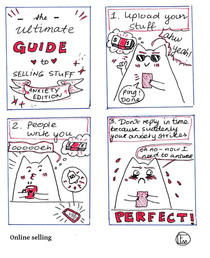 - the -
ultimate
GUIDE
to
SELLING STUFF
ANXIETY
EDITION
1. Upload your
stuff
uhu
yeah!
Ping!
Done
2. People
write you
ooooooh
3. Don't reply in time
because suddenly
your anxiety strikes
oh no - now I
need to answer
PERFECT!
Online selling